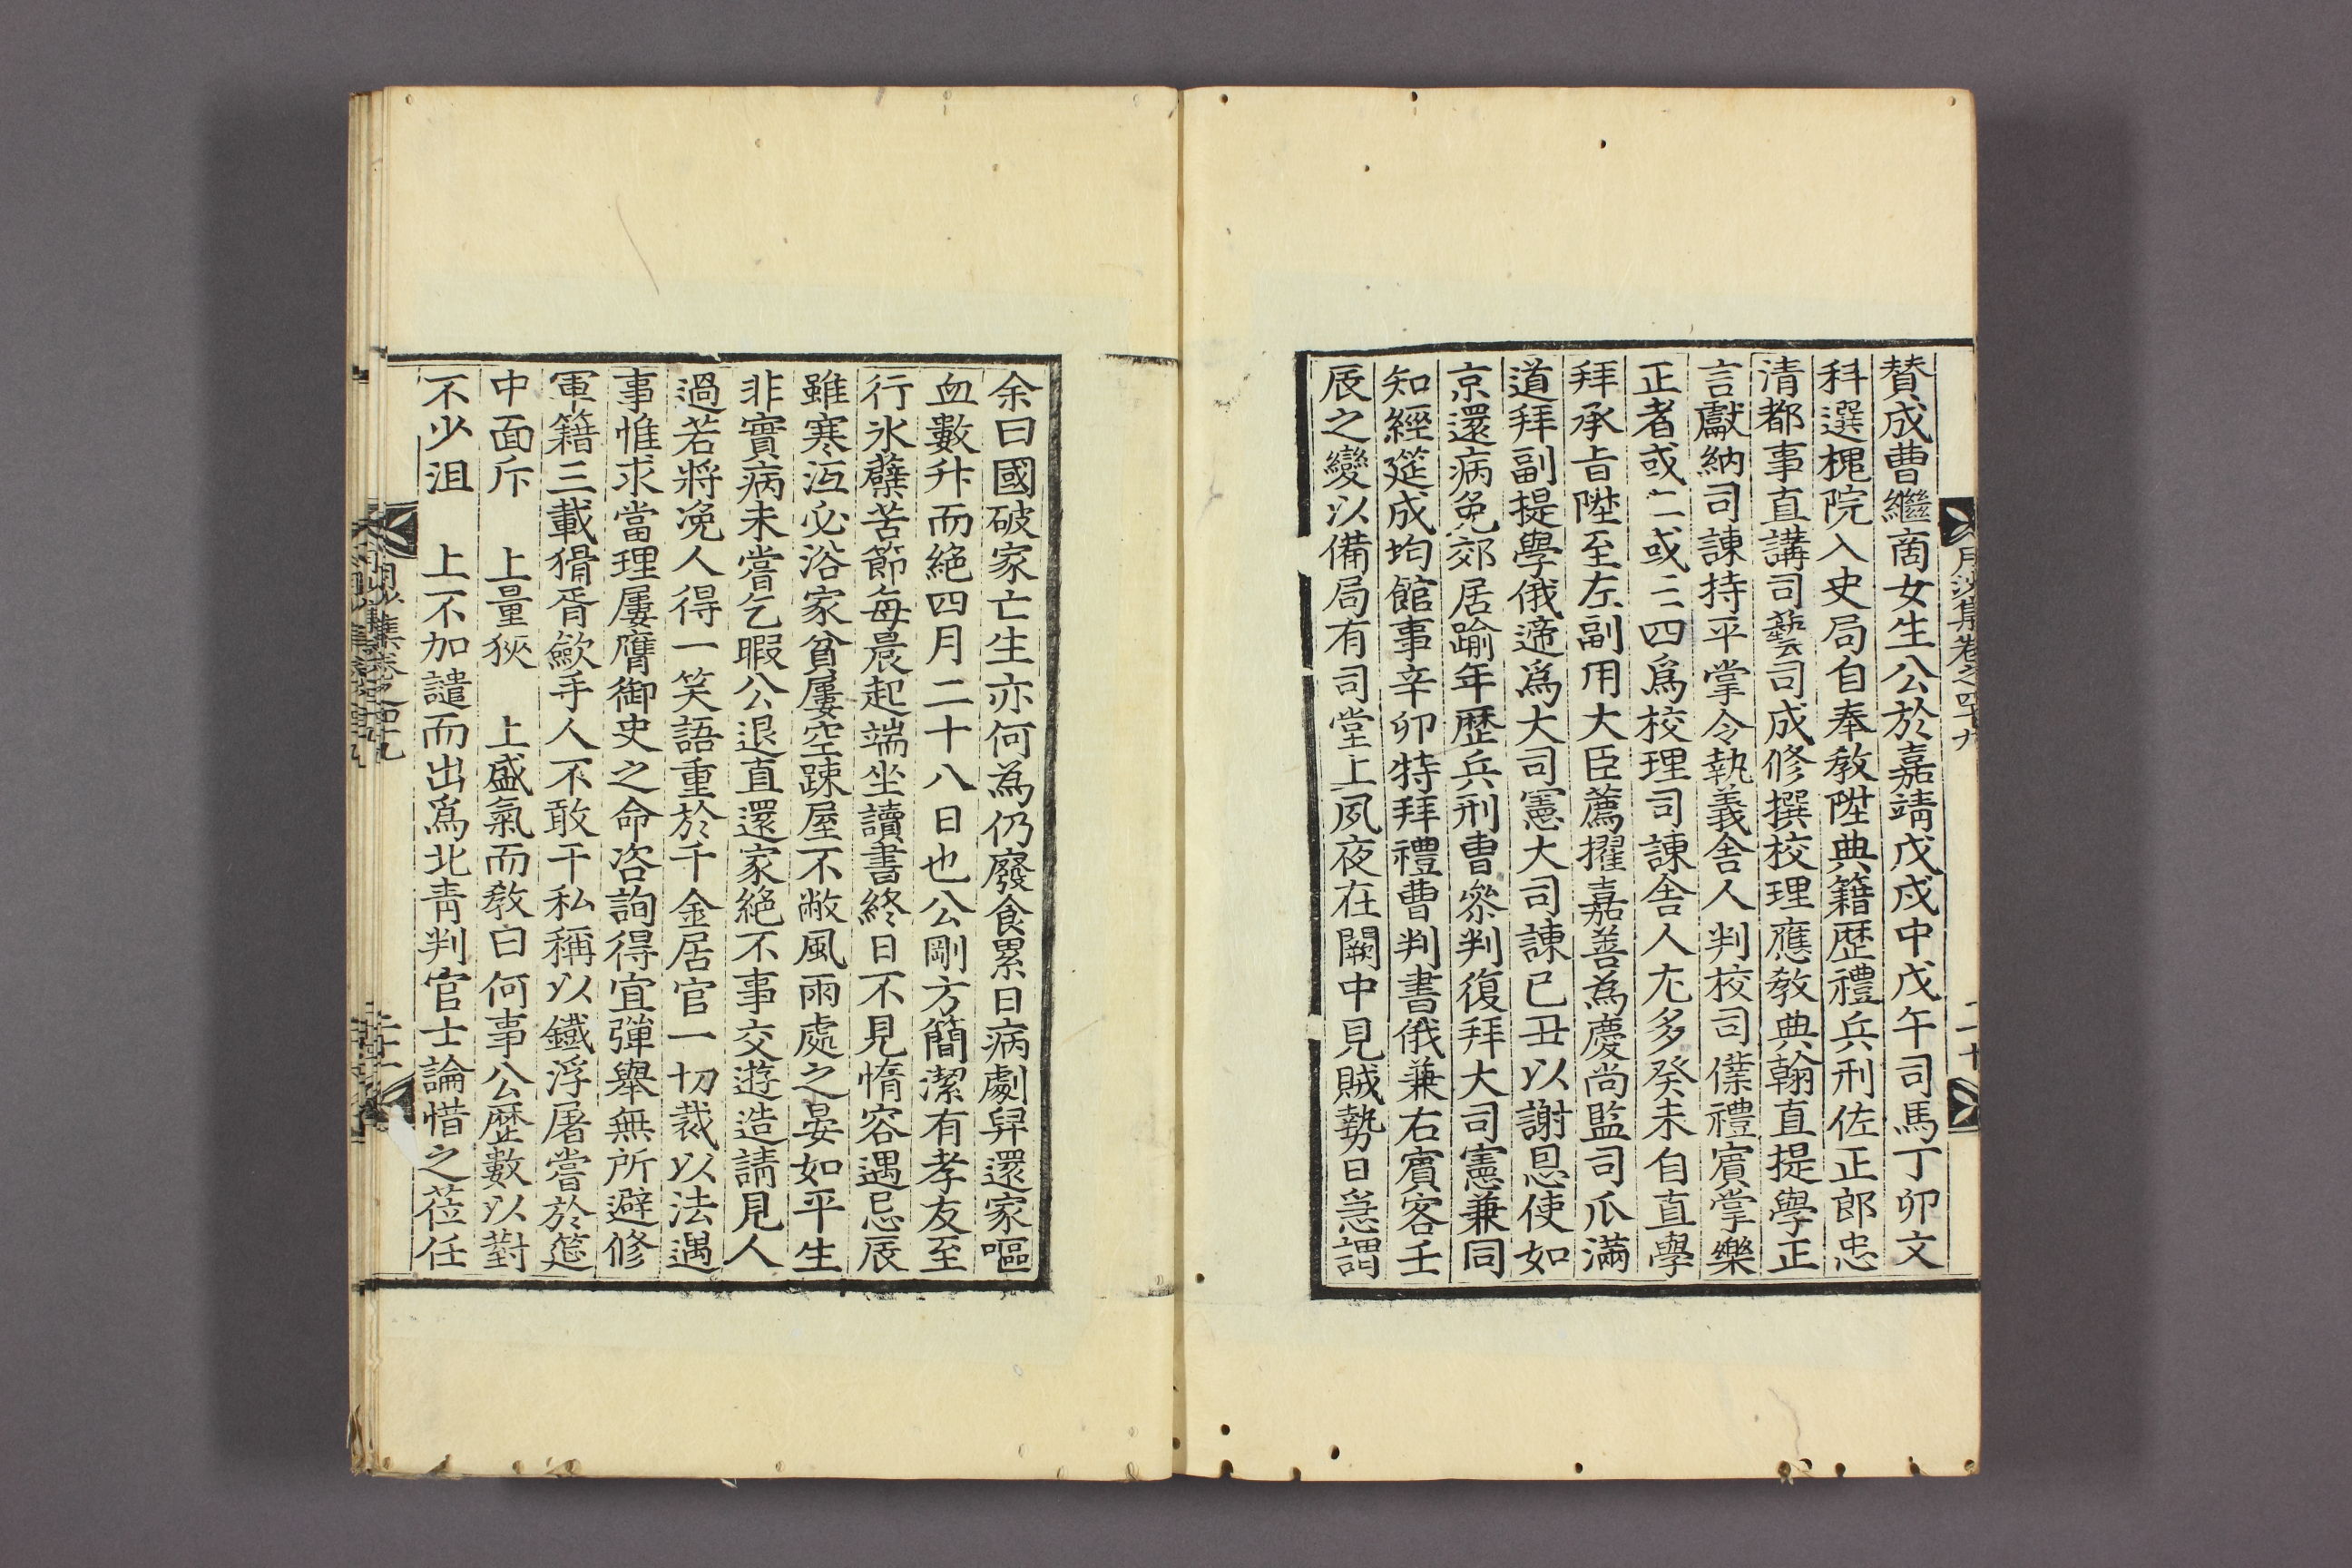 月沙集卷之四十九
二十
贊成曹繼商女生公於嘉靖戊戌中戊午司馬丁卯文
科選槐院入史局自奉教陞典籍歷禮兵刑佐正郎忠
清都事直講司藝司成修撰校理應教典翰直提學正
言獻納司諫持平掌令執義舍人判校司僕禮賓掌樂
正者或二或三四爲校理司諫舍人尤多癸未自直學
拜承旨陞至左副用大臣薦擢嘉善為慶尚監司瓜滿
道拜副提學俄遞爲大司憲大司諫己丑以謝恩使如
京還病免郊居踰年歷兵刑曹參判復拜大司憲兼同
知經筵成均館事辛卯特拜禮曹判書俄兼右賓客壬
辰之變以備局有司堂上夙夜在闕中見賊勢日急謂
余曰國破家亡生亦何為仍廢食累日病劇舁還家嘔
血數升而絕四月二十八日也公剛方簡潔有孝友至
行氷蘗苦節每晨起端坐讀書終日不見惰容遇忌辰
雖寒沍必浴家貧屢空踈屋不敝風雨處之晏如平生
非實病未嘗乞暇公退直還家絕不事交遊造請見人
過若將凂人得一笑語重於千金居官一切裁以法遇
事惟求當理屢膺御史之命咨詢得宜彈舉無所避修
軍籍三載猾胥歛手人不敢干私稱以鐵浮屠嘗於筵
中面斥　上量狹　上盛氣而教曰何事公歷數以對
不少沮　上不加譴而出爲北靑判官士論惜之莅任